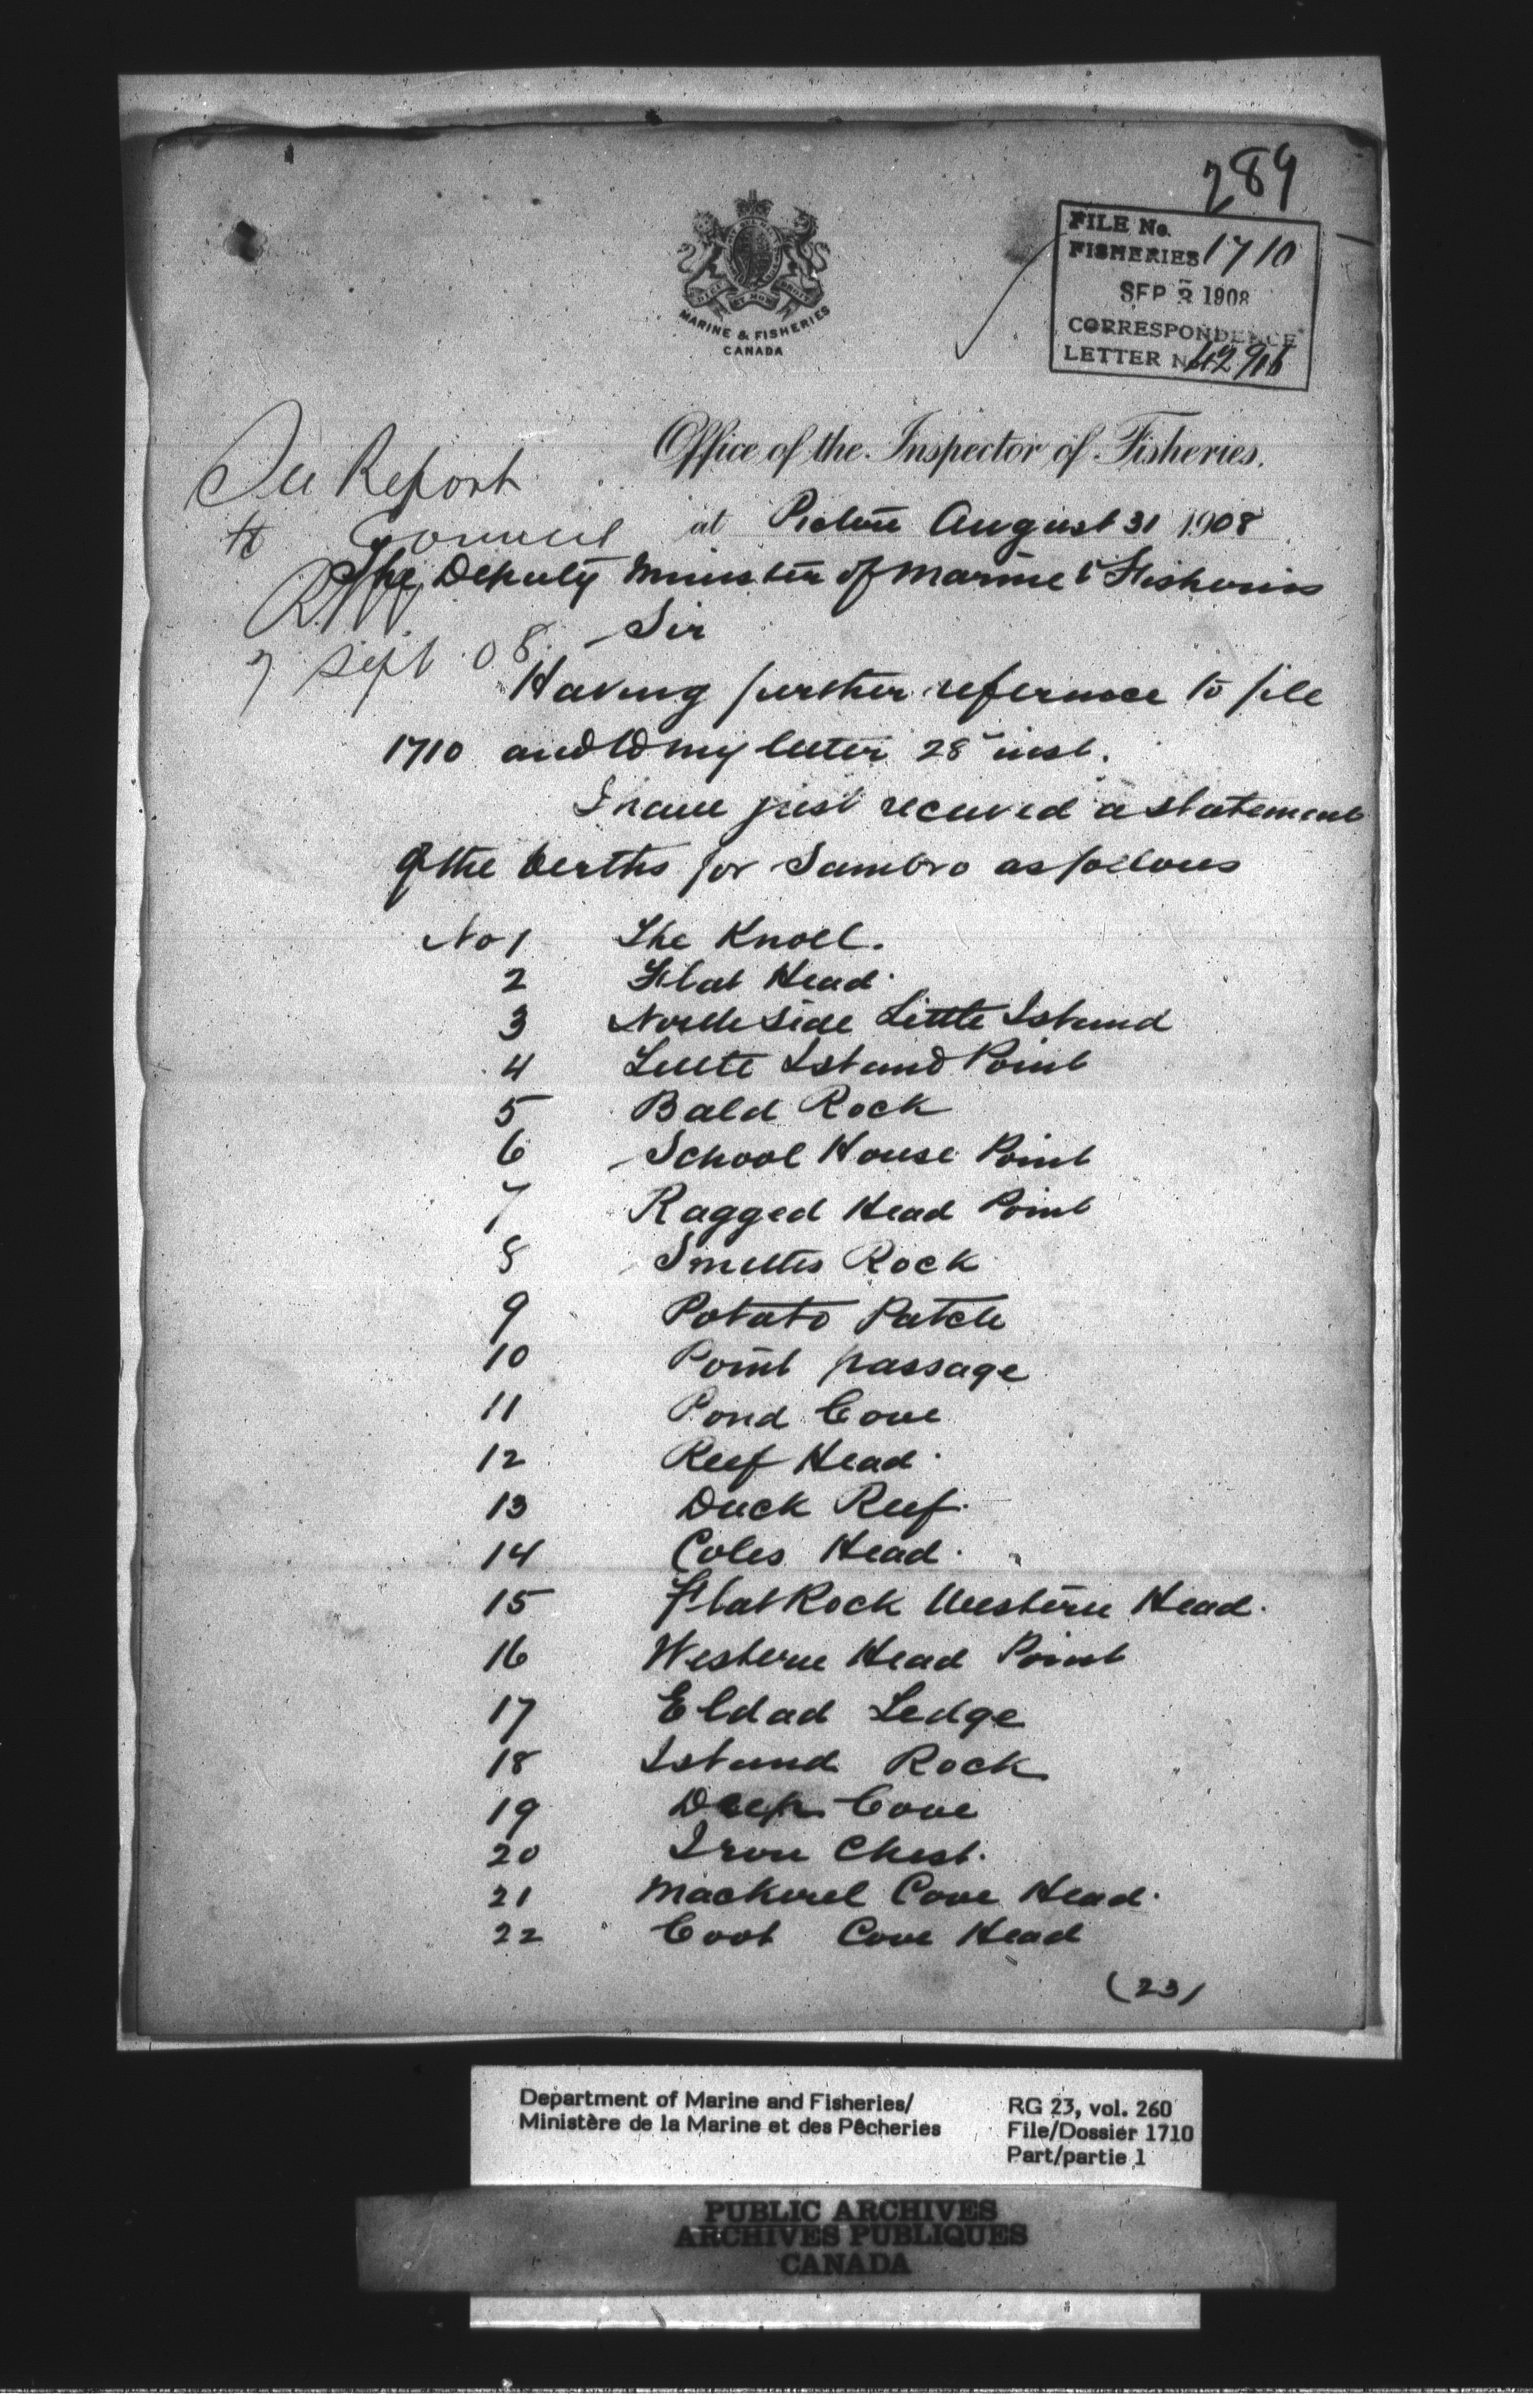 289
FILE No.
FISHERIES 1710
SEP 3 1908
CORRESPONDENCE
LETTER No.
DIEU ET MON DROIT
MARINE & FISHERIES
CANADA
Office of the Inspector of Fisheries.
See Report
to Council
at Pictou August 31 1908
The Deputy Minister of Marine & Fisheries
Sir
7 Sept 08.
Having further reference to file
1710 and to my letter 28" inst.
I have just received a statement
of the berths for Sambro as follows
No 1 The Knoll.
2 Flat Head.
3 North Side Little Island
4 Little Island Point
5 Bald Rock
6 School House Point
7 Ragged Head Point
8 Smiths Rock
9 Potato Patch
10 Point passage
11 Pond Cove
12 Reef Head.
13 Duck Reef.
14 Coles Head.
15 Flat Rock Western Head.
16 Western Head Point
17 Eldad Ledge
18 Island Rock
19 Deep Cove
20 Iron Chest.
21 Mackerel Cove Head.
22 Coot Cove Head
(23)
Department of Marine and Fisheries/
Ministère de la Marine et des Pêcheries
RG 23, vol. 260
File/Dossier 1710
Part/partie 1
PUBLIC ARCHIVES
ARCHIVES PUBLIQUES
CANADA